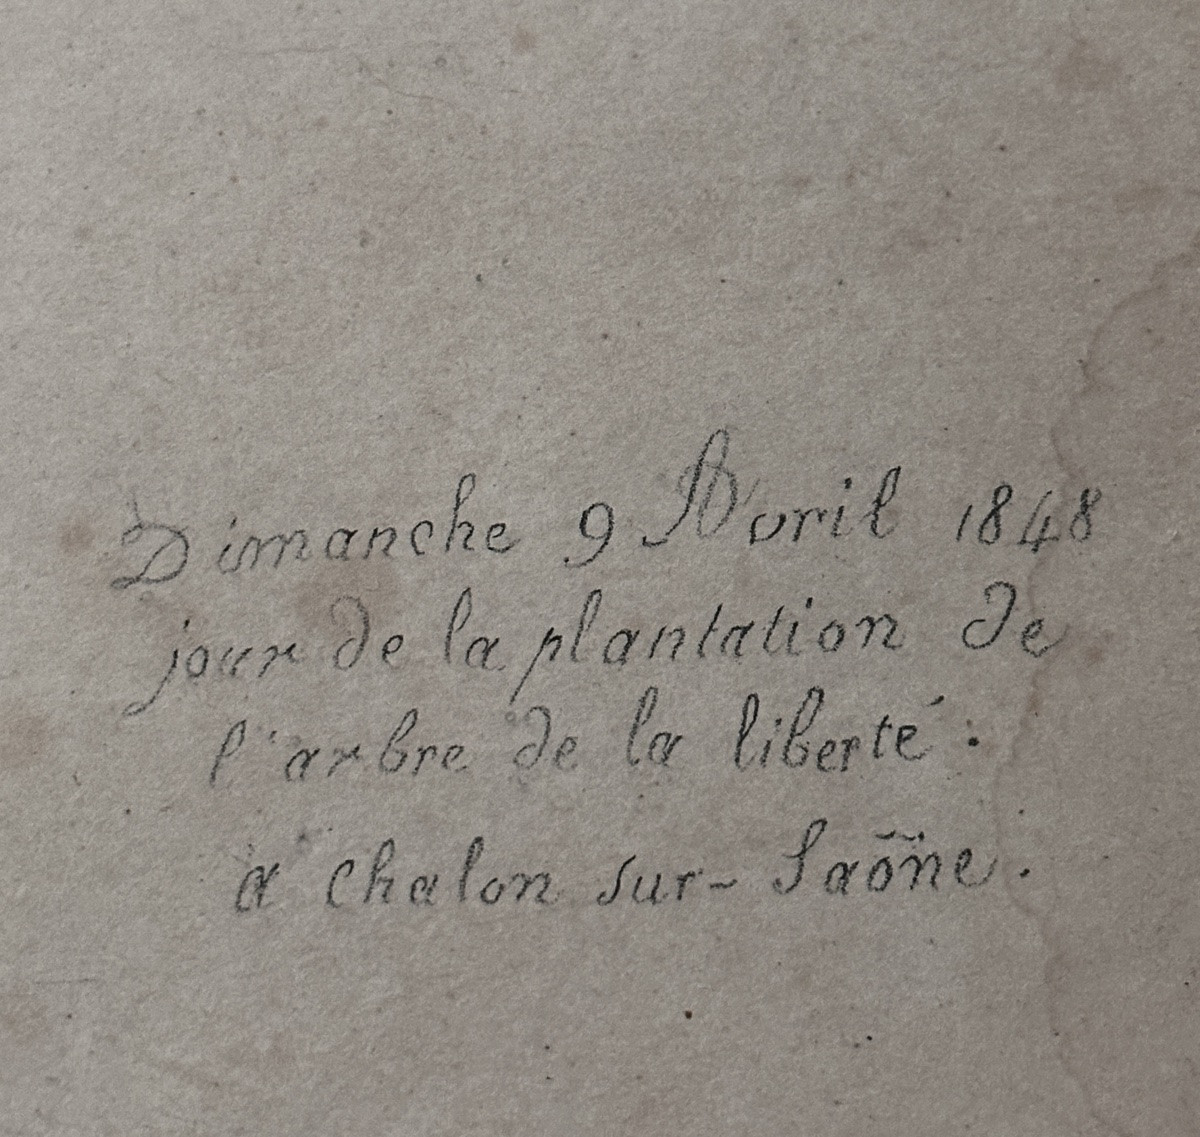 Dimanche 9 Avril 1848
jour de la plantation de
l'arbre de la liberté.
à chalon sur-Saône.